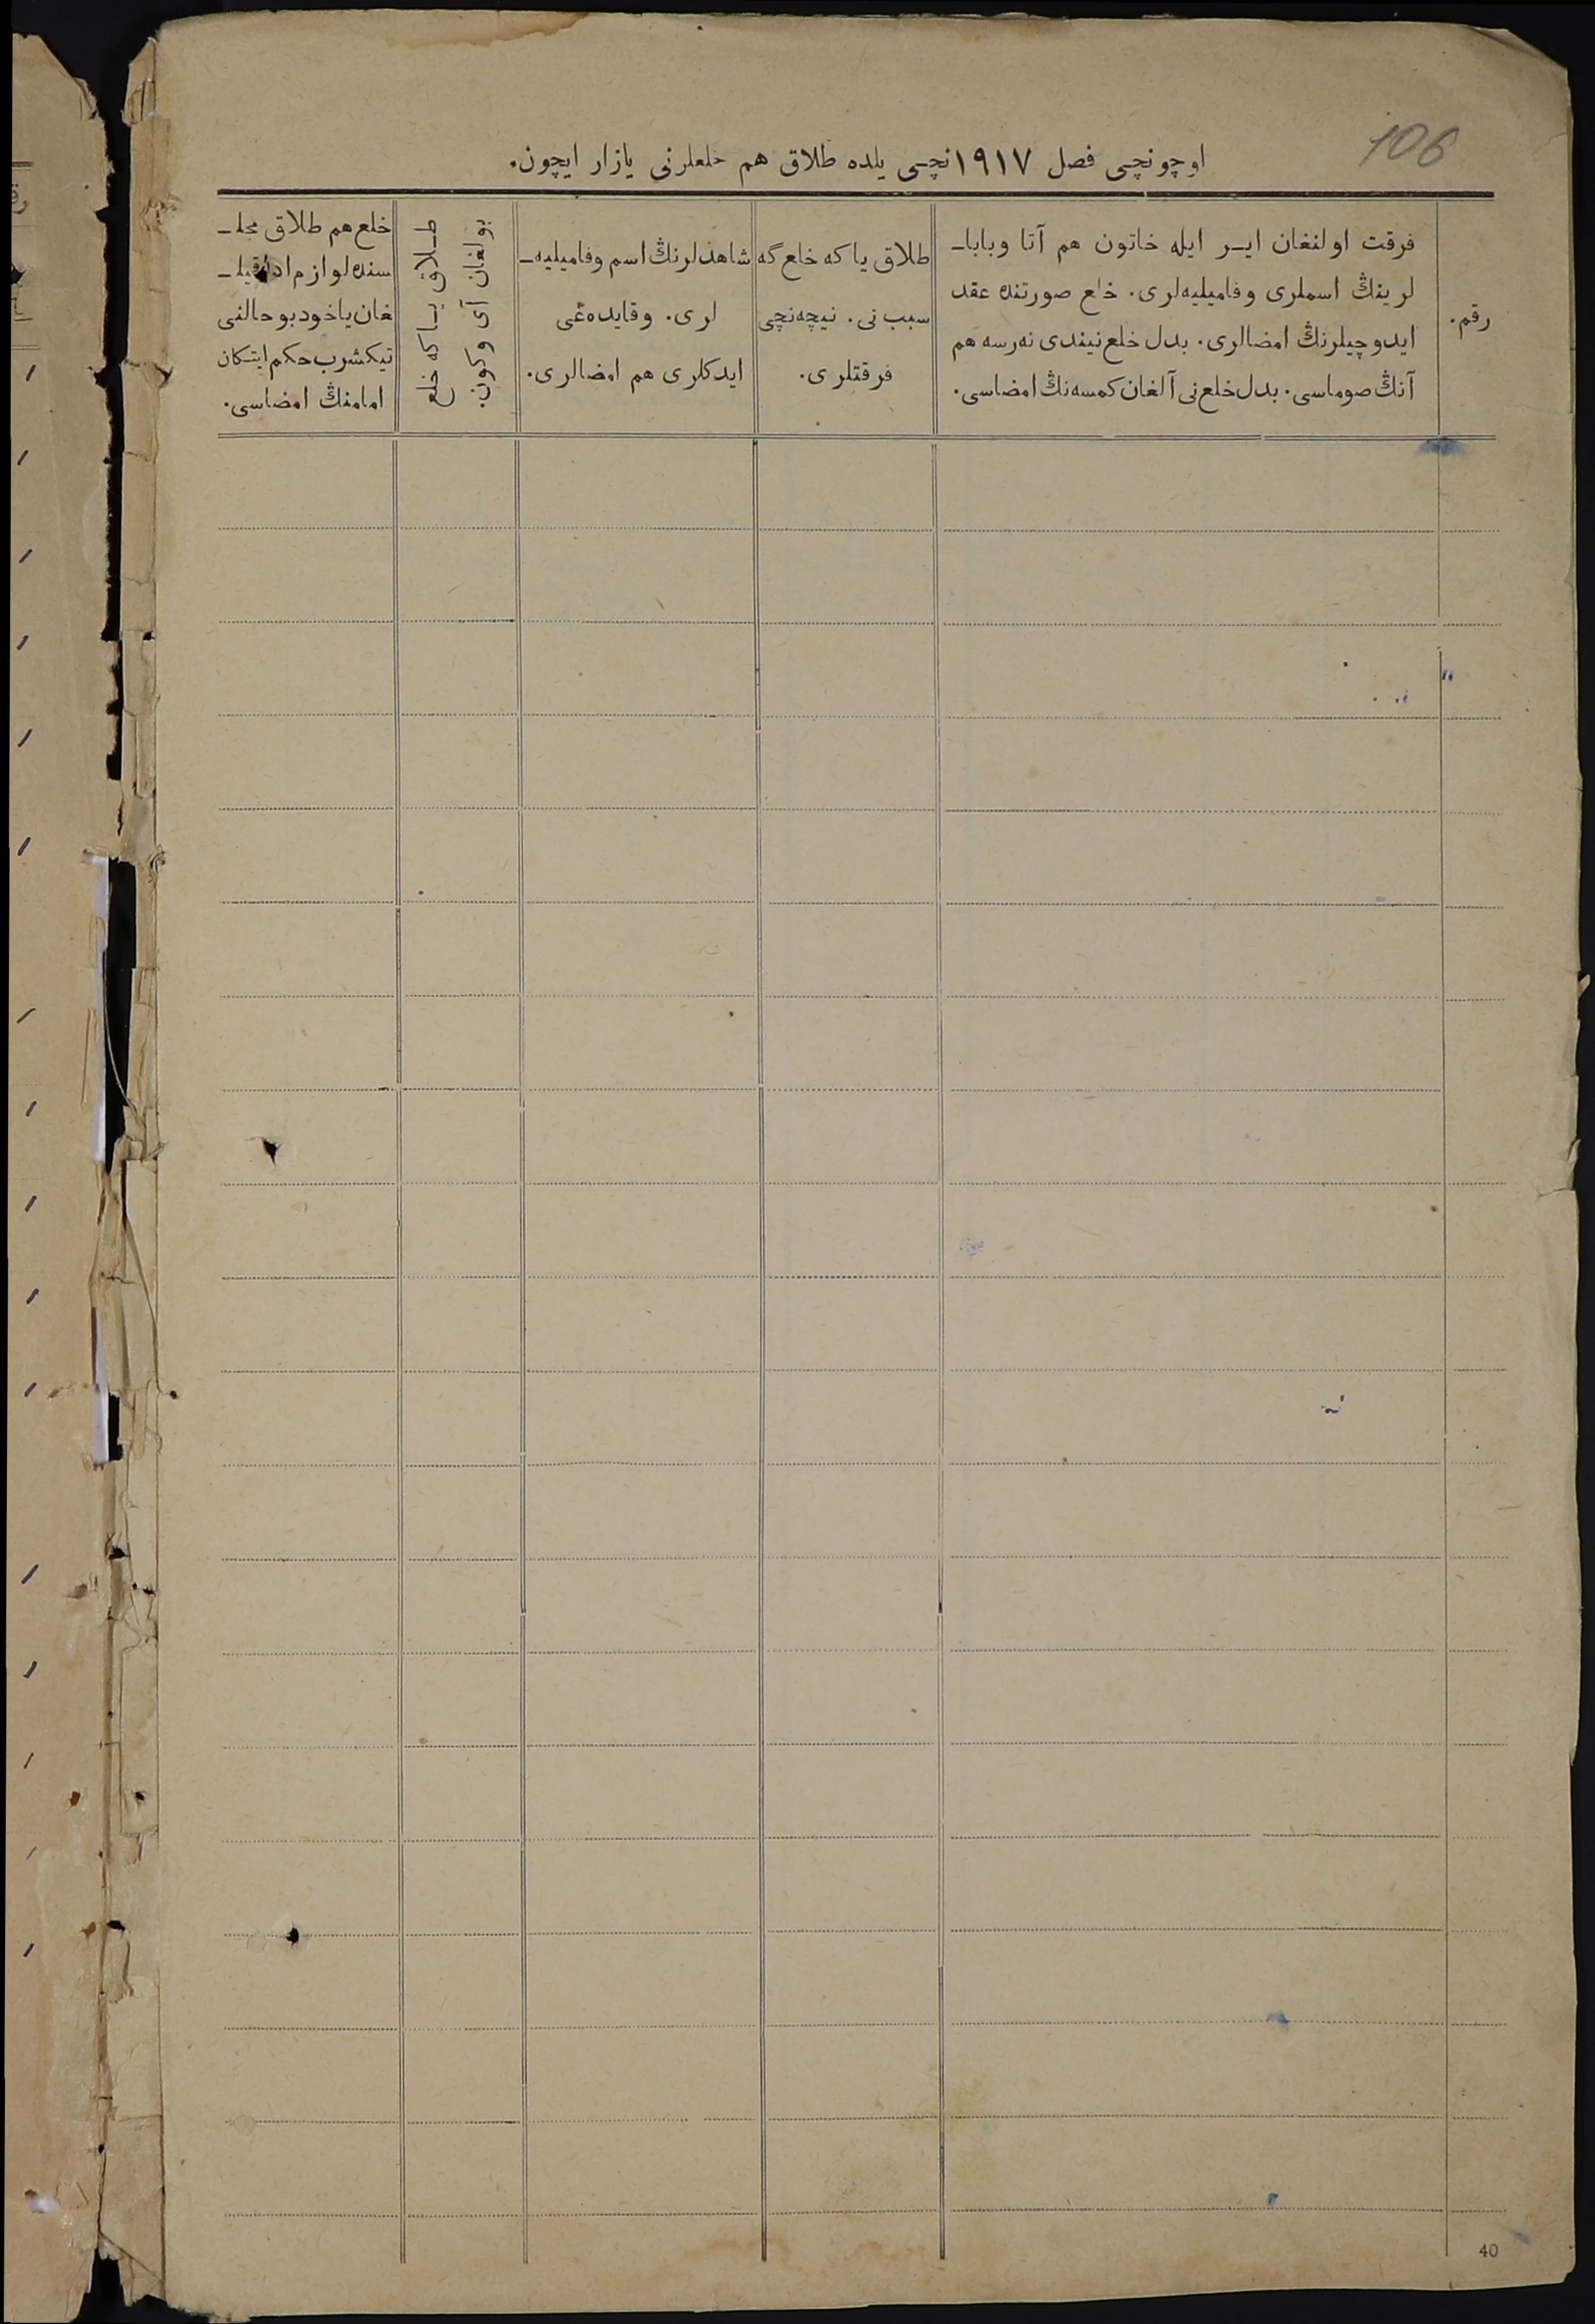 106
اوچونچی فصل ١٩١٧نچی یلده طلاق هم خلعلرنی یازار ایچون.
رقم.
فرقت اولنغان ایـر ایله خاتون هم آتا وبابا‌ـ
لرینڭ اسملری وفامیلیه‌لری. خلع صورتنده عقد
ایدوچیلرنڭ امضالری. بدل خلع نیندی نه‌رسه هم
آنڭ صوماسی. بدل خلع‌نی آلغان کمسه‌نڭ امضاسی.
طلاق یا که خلع گه
سبب نی. نیچه‌نچی
فرقتلری.
شاهدلرنڭ اسم وفامیلیه‌ـ
لری. وقایده‌غی
ایدکلری هم امضالری.
طـلاق یـا که خلع
بولغان آی وکون.
خلع هم طلاق مجلـ
سنده لوازم ادا قیلـ
غان یاخود بو حالنی
تیکشرب حکم ایتـکان
امامنڭ امضاسی.
40